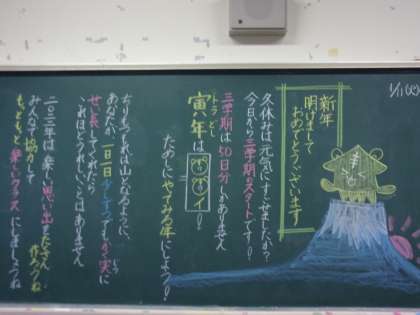 1/11(火)
新年
明けまして
おめでとうございます
冬休みは元気にすごせましたか?
今日から三学期がスタートです!!
三学期は50日分しかありません
トラどし
寅年は トライ!
ためしにやってみる年にしよう!!
ちりもつもれば山となるように、
あなたが一日一日少しずつでも確実に
じつ
せい長してくれたら
これほどうれしいことはありません
二〇二二年は楽しい思い出をたくさん作ろうね
みんなで協力して
もっともっと楽しいクラスにしましょうね